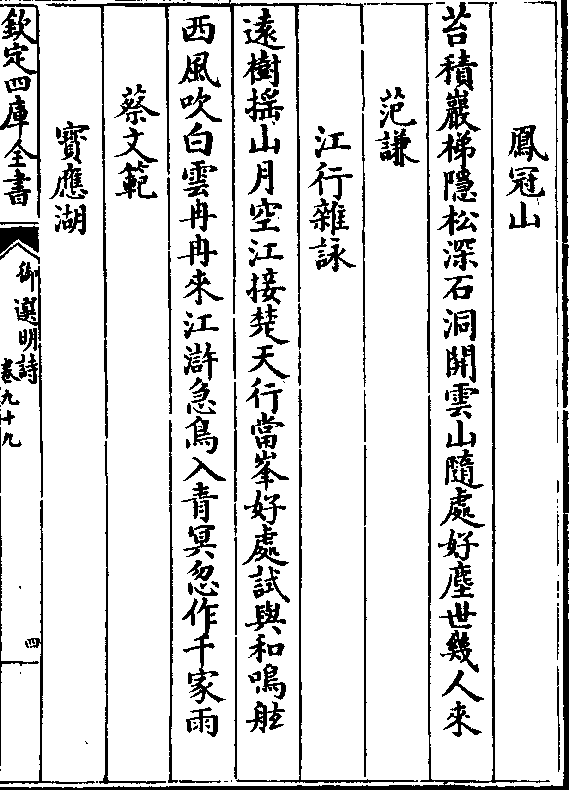 鳳冠山
苔積巖梯隠松深石洞開雲山隨處好塵世幾人來
范謙
江行雜詠
遠樹揺山月空江接楚天行當峯好處試與和鳴舷
西風吹白雲冉冉來江滸急鳥入青冥忽作千家雨
蔡文範
寶應湖
欽定四庫全書
御選明詩
卷九十九
四